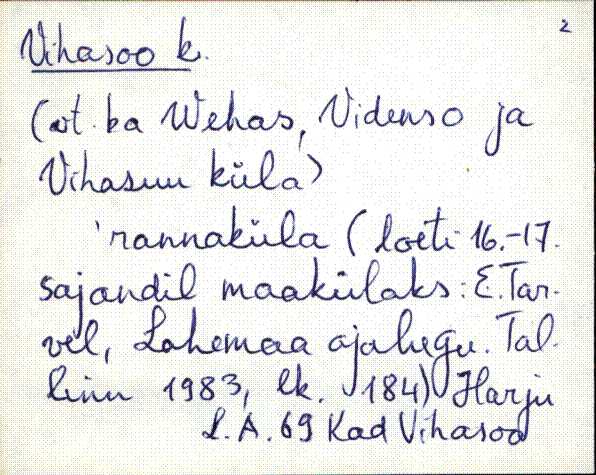 2
Vihasoo k.
(vt. ka Wehas, Videnso ja
Vihasuu küla)
'rannaküla (loeti 16.-17.
sajandil maakülaks: E.Tar-
vel, Lahemaa ajalugu. Tal-
linn 1983, lk. 184) Harju
L.A. 69 Kad Vihasoo